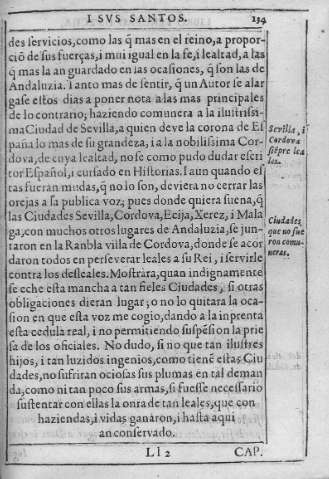 I SVS SANTOS. 134
des servicios, como las q̃ mas en el reino, a propor-
ciõ de sus fuerças, i mui igual en la fe, i lealtad, a las
q̃ mas la an guardado en las ocasiones, q̃ son las de
Andaluzia. I anto mas de sentir, q̃ un Autor se alar
gase estos dias a poner nota a las mas principales
de lo contrario; haziendo comunera a la ilustrissi-
ma Ciudad de Sevilla, a quien deve la corona de Es
paña lo mas de su grandeza, i a la nobilissima Cor-
dova, de cuya lealtad, no se como pudo dudar escri
tor Español, i cursado en Historias. I aun quando es
tas fueran mudas, q̃ no lo son, deviera no cerrar las
orejas a sa publica voz; pues donde quiera suena, q̃
las Ciudades Sevilla, Cordova, Ecija, Xerez, i Mala
ga, con muchos otros lugares de Andaluzia, se jun-
taron en la Ranbla villa de Cordova, donde se acor
daron todos en perseverar leales a su Rei, i servirle
contra los desleales. Mostrára, quan indignamente
se eche esta mancha a tan fieles Ciudades, si otras
obligaciones dieran lugar; o no lo quitara la oca-
sion en que esta voz me cogio, dando a la inprenta
esta cedula real, i no permitiendo suspẽsiõn la prie
sa de los oficiales. No dudo, si no que tan ilustres
hijos, i tan luzidos ingenios, como tienẽ estas Ciu
dades, no sufriran ociosas sus plumas en tal deman
da, como ni tan poco sus armas, si fuesse necessario
sustentar con ellas la onra de tan leales, que con
haziendas, i vidas ganáron, i hasta aqui
an conservado.
Sevilla, i
Cordova
siẽpre lea
les.
Ciudades
que no fue
ron comu-
neras.
Ll 2 CAP.